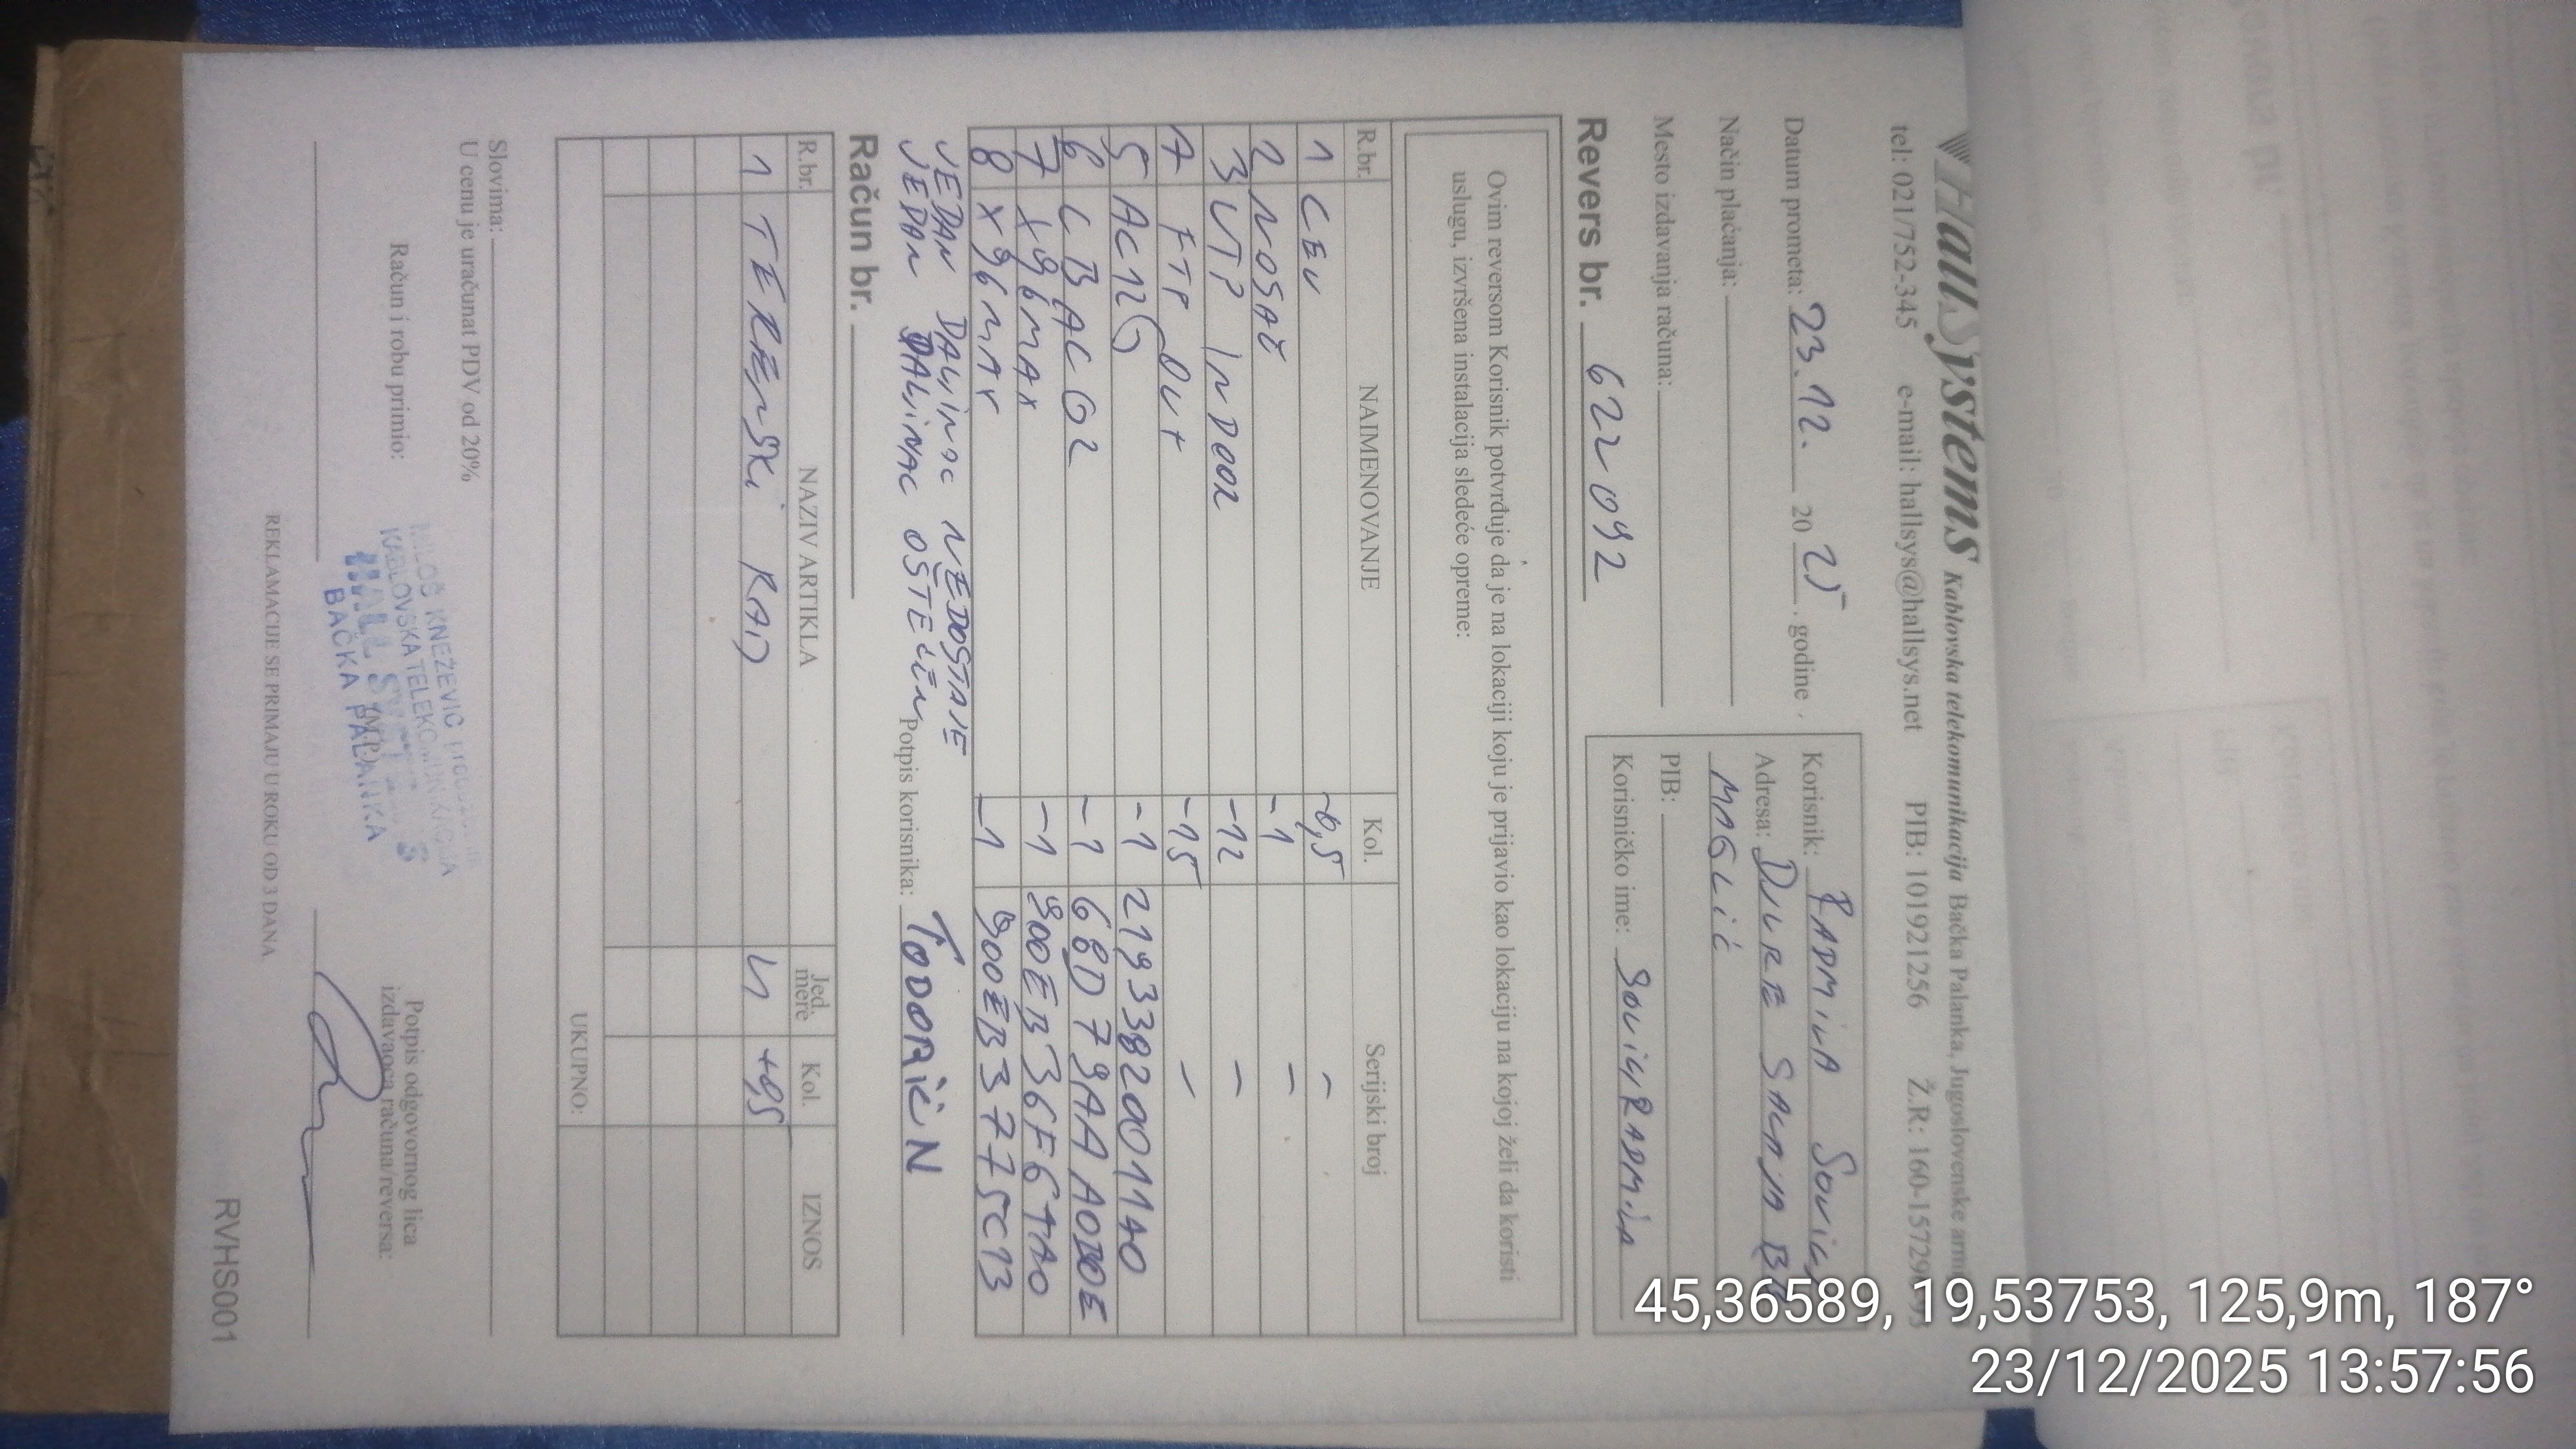 HallSystems Kablovska telekomunikacija Bačka Palanka, Jugoslovenske arm
tel: 021/752-345 e-mail: hallsys@hallsys.net PIB: 101921256 Ž.R: 160-15729
Datum prometa: 23.12. 20 25. godine
Način plaćanja:
Mesto izdavanja računa:
Korisnik: RADMILA
Adresa: DURE
MAGLIĆ
PIB:
Korisničko ime:
Revers br. 622092
Ovim reversom Korisnik potvrđuje da je na lokaciji koju je prijavio kao lokaciju na kojoj želi da koristi
uslugu, izvršena instalacija sledeće opreme:
R.br. NAIMENOVANJE Kol. Serijski broj
1 CEV -0,5 –
2 NOSAČ -1 –
3 UTP INDOOR -12 –
4 FTP OUT -15 –
5 AC12G -1 2193382001140
6 -1 68D79AAA0D0E
7 X96MAX -1 900EB36F61A0
8 X96MAX -1 900EB3775C13
JEDAN DALINAC NEDOSTAJE
JEDAN DALINAC OŠTEĆEN
Potpis korisnika:
Račun br.
R.br. NAZIV ARTIKLA Jed. mere Kol. IZNOS
1 TERENSKI RAD h +0,5
UKUPNO:
Slovima:
U cenu je uračunat PDV od 20%
Račun i robu primio:
MILOŠ KNEŽEVIĆ
KABLOVSKA TELEKOMUNIKACIJA
HALL SYSTEMS
BAČKA PALANKA
(M.P.)
Potpis odgovornog lica
izdavaoca računa/reversa:
REKLAMACIJE SE PRIMAJU U ROKU OD 3 DANA
RVHS001
45,36589, 19,53753, 125,9m, 187°
23/12/2025 13:57:56